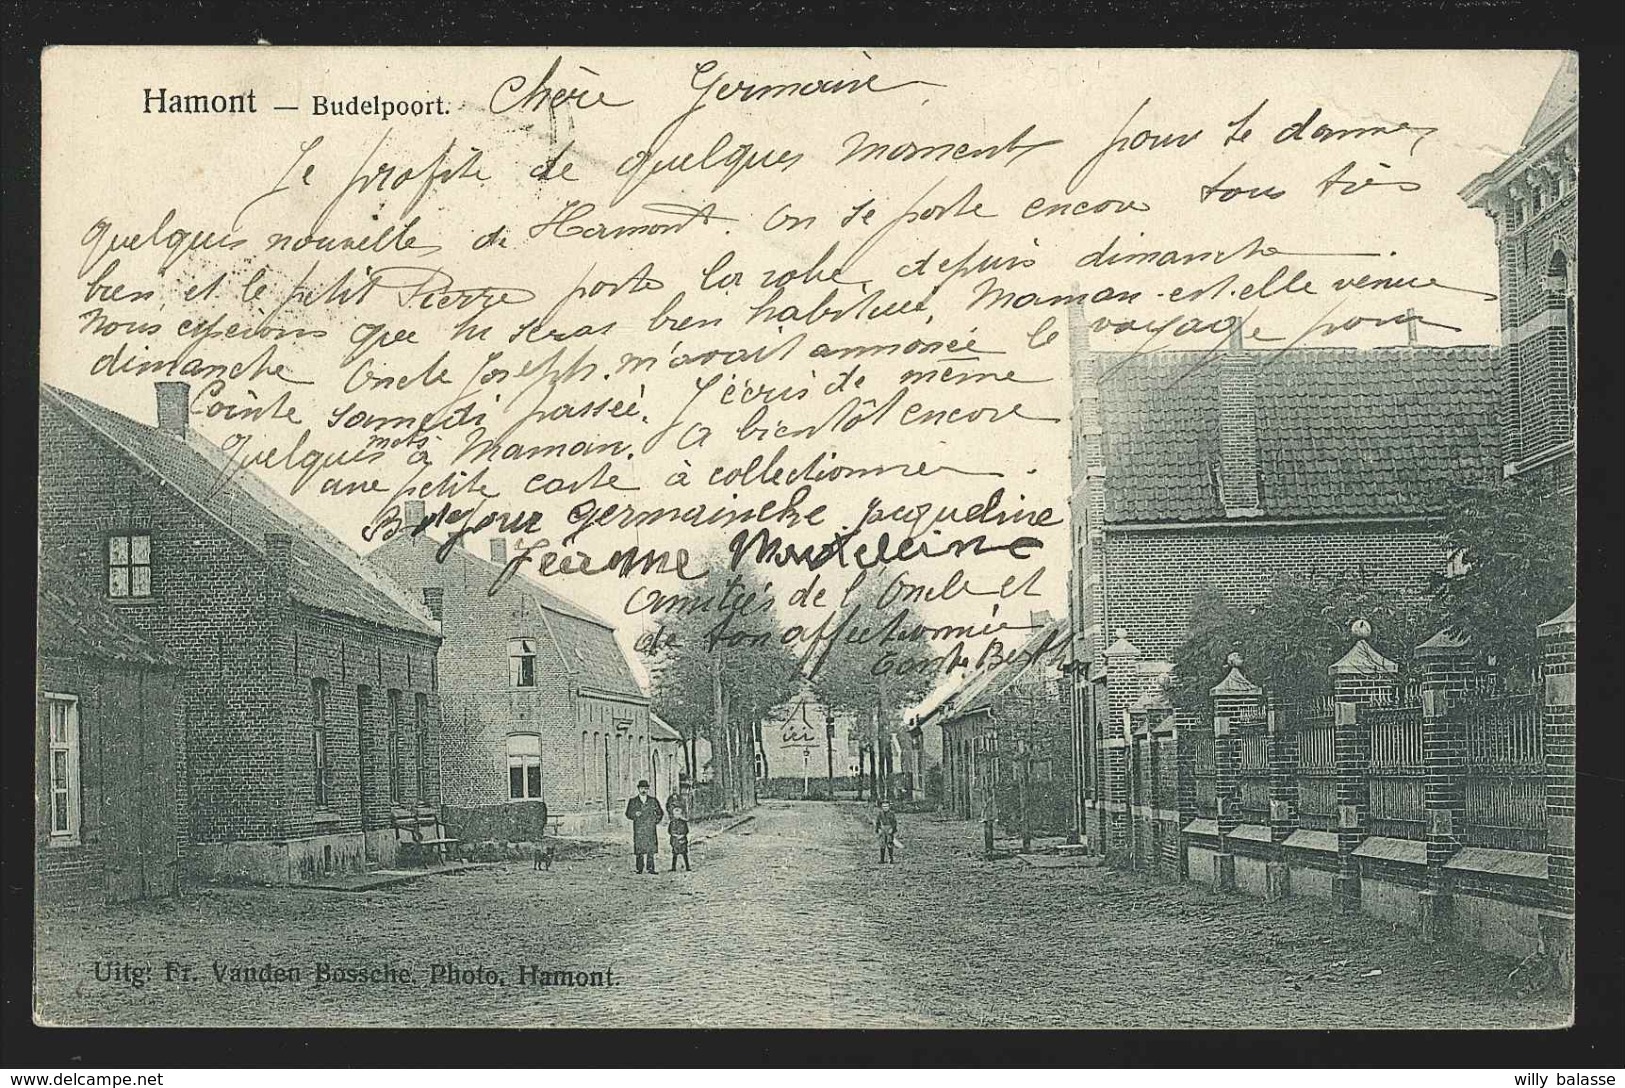 Hamont — Budelpoort.
Chère Germaine
Je profite de quelques moments pour te donner
quelques nouvelles de Hamont. On se porte encore tous très
bien et le petit Pierre porte la robe depuis dimanche
Nous espérons que tu seras bien habituée. Maman est-elle venue
dimanche Oncle Joseph m'avait annoncé le voyage pour
Cointe samedi passé. J'écris de même
quelques mots à Maman. A bientôt encore
une petite carte à collectionner.
Bonjour Germaineke Jacqueline
Jérôme Madeleine
Amitiés de l'Oncle et
de ton affectionnée
tante Bertha
ici
Uitg: Fr. Vanden Bossche, Photo, Hamont.
delcampe.net
willy balasse